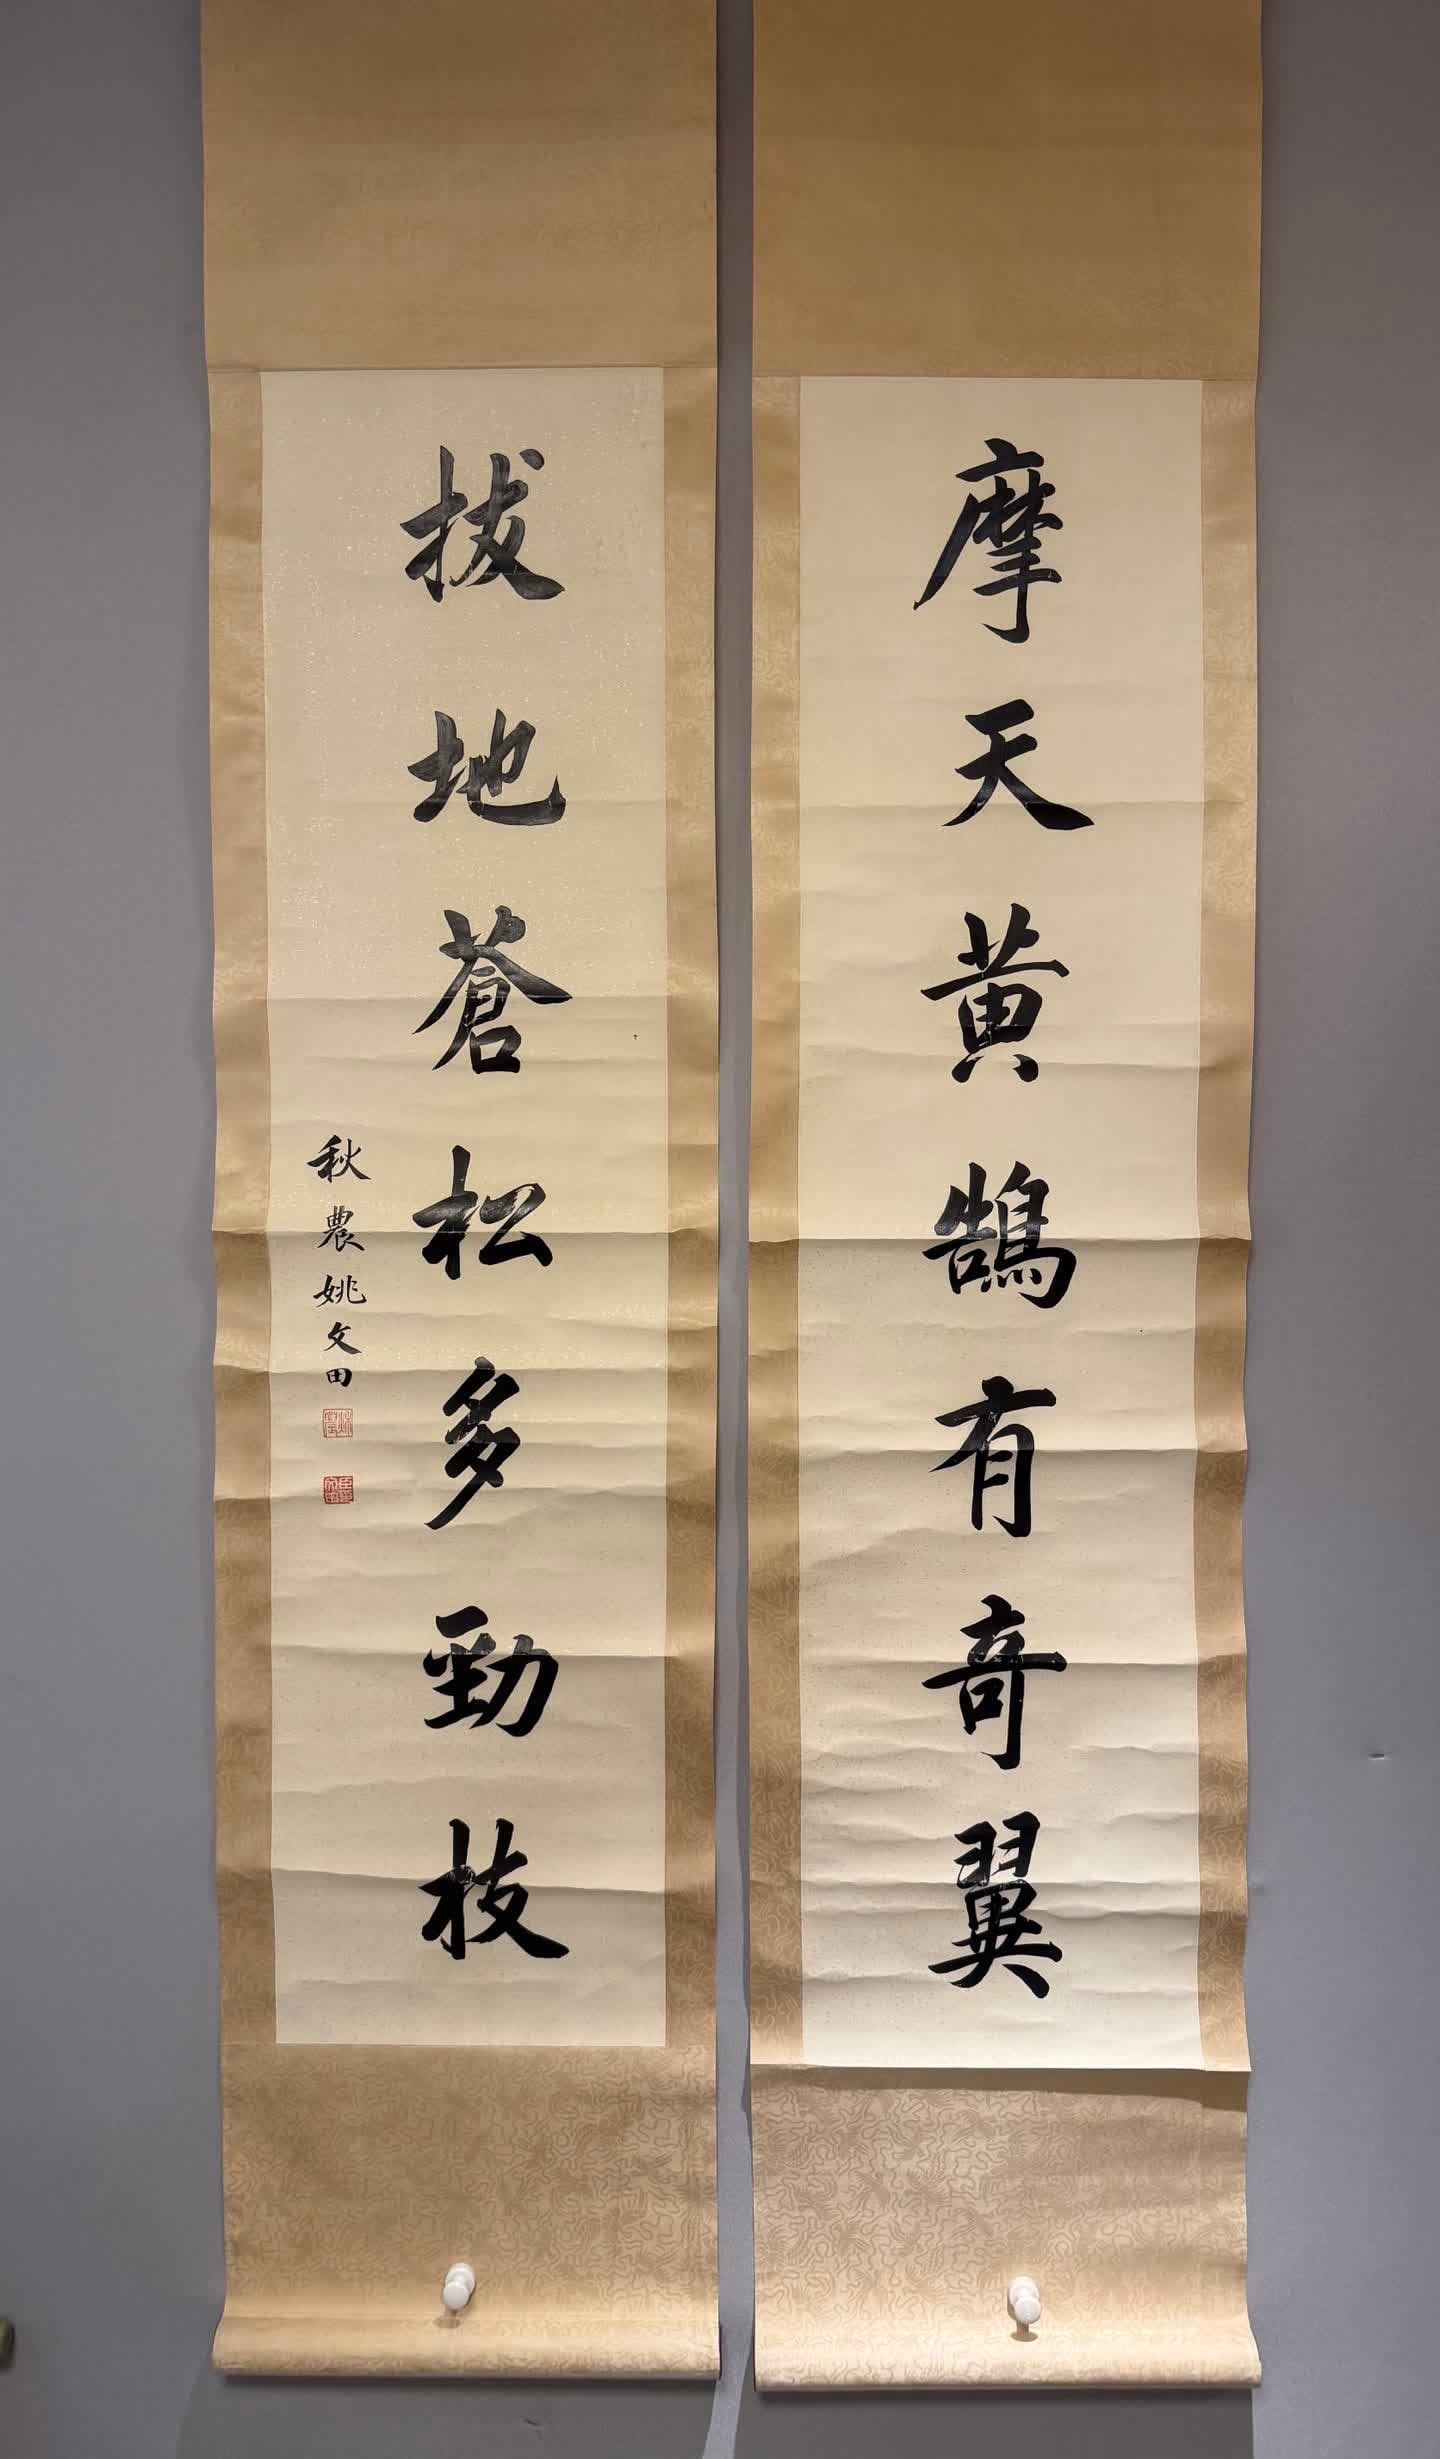 摩天黃鵠有奇翼
拔地蒼松多勁枝
秋農姚文田